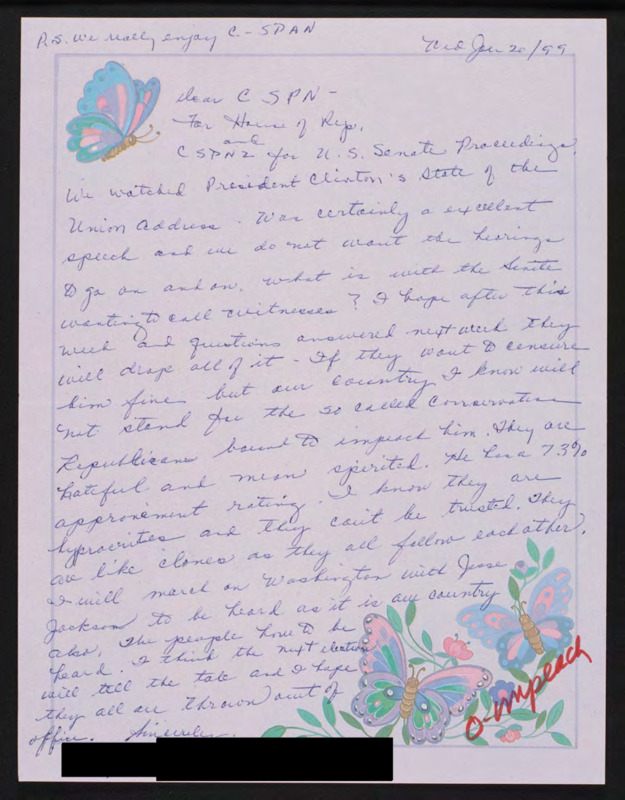 P.S. We really enjoy C-SPAN
Wed Jan 20/99
Dear C SPN -
For House of Rep.
and
C SPN2 for U.S. Senate Proceedings.
We watched President Clinton's State of the
Union address. Was certainly a excellent
speech and we do not want the hearings
to go on and on. What is with the Senate
wanting to call witnesses? I hope after this
week and questions answered next week they
will drop all of it - If they want to censure
him fine but our country I know will
not stand for the so called Conservative
Republicans bound to impeach him. They are
hateful and mean spirited. He has a 73%
approvement rating. I know they are
hyprocrites and they can't be trusted. They
are like clones as they all follow each other.
I will march on Washington with Jesse
Jackson to be heard as it is our country
also. The people have to be
heard. I think the next election
will tell the tale and I hope
they all are thrown out of
office. Sincerely,
O-impeach